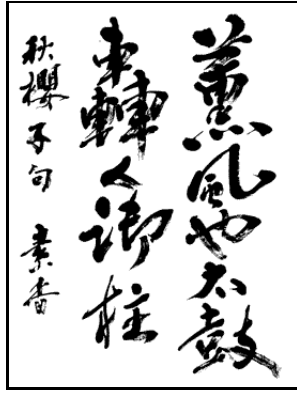 薫風や太鼓
轟く御柱
秋櫻子句 素香